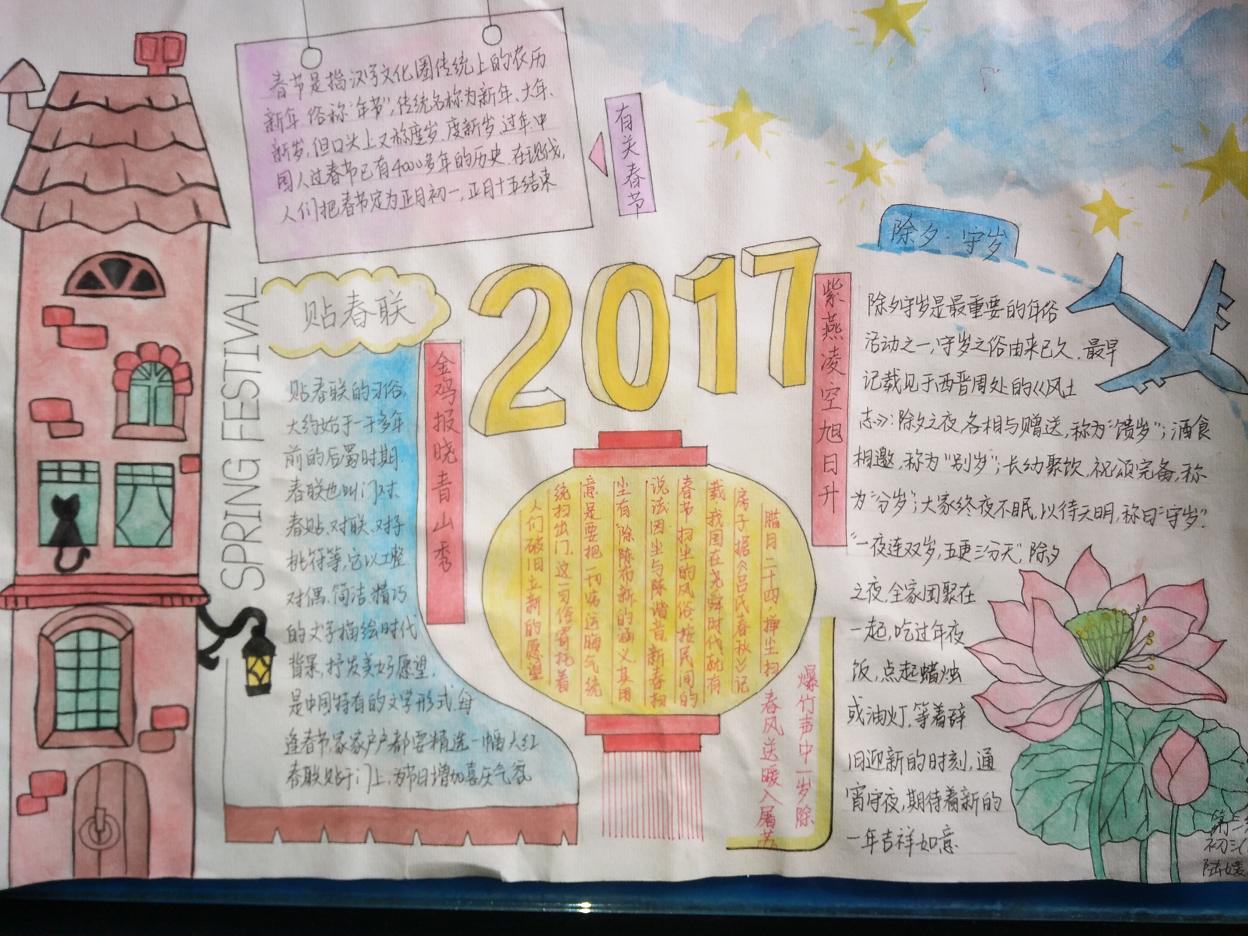 春节是指汉字文化圈传统上的农历
新年,俗称"年节",传统名称为新年、大年、
新岁,但口头上又称度岁、度新岁、过年,中
国人过春节已有4000多年的历史,在现代,
人们把春节定为正月初一,正月十五结束
有关春节
SPRING FESTIVAL
贴春联
贴春联的习俗,
大约始于一千多年
前的后蜀时期.
春联也叫门对、
春贴、对联、对子
桃符等,它以工整
对偶、简洁、精巧
的文字描绘时代
背景,抒发美好愿望,
是中国特有的文字形式.每
逢春节家家户户都要精选一幅大红
春联贴于门上,为节日增加喜庆气氛
金鸡报晓青山秀
2017
紫燕凌空旭日升
腊月二十四,掸尘扫
房子据《吕氏春秋》记
载,我国在尧舜时代就有
春节扫尘的风俗.按民间的
说法:因尘与陈谐音,新春扫
尘有"除陈布新"的涵义,其用
意是要把一切穷运晦气统
统扫出门.这一习俗寄托着
人们破旧立新的愿望
爆竹声中一岁除
春风送暖入屠苏
除夕·守岁
除夕守岁是最重要的年俗
活动之一,守岁之俗由来已久.最早
记载见于西晋周处的《风土
志》:除夕之夜,各相与赠送,称为"馈岁";酒食
相邀,称为"别岁";长幼聚饮,祝颂完备,称
为"分岁";大家终夜不眠,以待天明,称曰"守岁".
"一夜连双岁,五更二分天",除夕
之夜,全家团聚在
一起,吃过年夜
饭,点起蜡烛
或油灯,等着辞
旧迎新的时刻,通
宵守夜,期待着新的
一年吉祥如意.